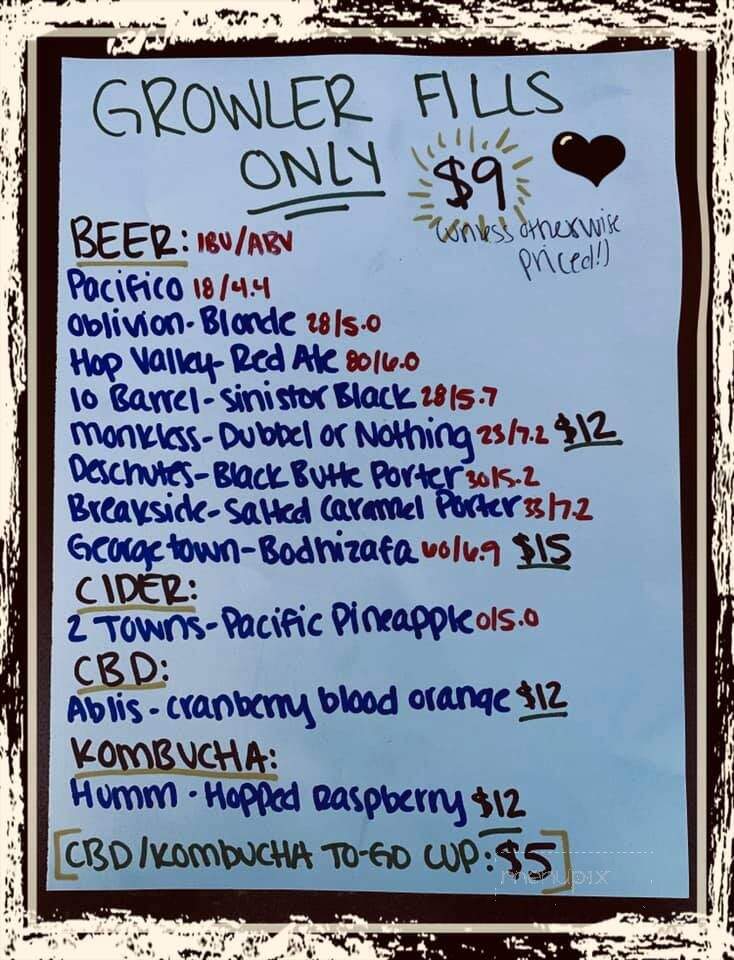 GROWLER FILLS
ONLY $9
(unless otherwise
priced!)
BEER: IBU/ABV
Pacifico 18/4.4
Oblivion-Blonde 28/5.0
Hop Valley-Red Ale 80/6.0
10 Barrel-Sinistor Black 28/5.7
Monkless-Dubbel or Nothing 23/7.2 $12
Deschutes-Black Butte Porter 30/5.2
Breakside-Salted Caramel Porter 33/7.2
Georgetown-Bodhizafa 60/6.9 $15
CIDER:
2 Towns-Pacific Pineapple 0/5.0
CBD:
Ablis-cranberry blood orange $12
KOMBUCHA:
Humm-Hopped Raspberry $12
[CBD/KOMBUCHA TO-GO CUP: $5]
menupix